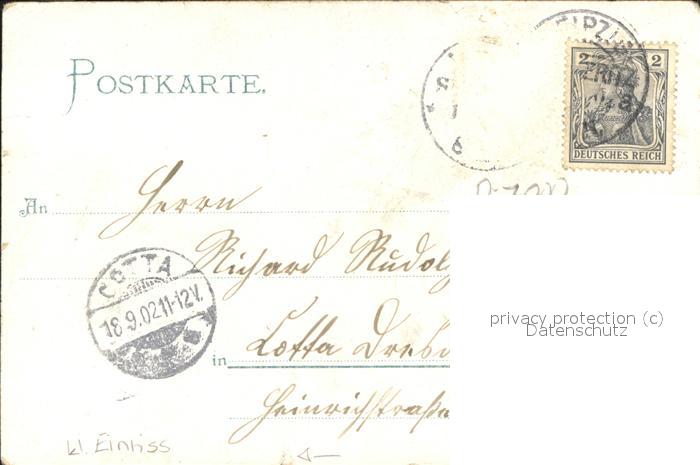 POSTKARTE.
2 2
DEUTSCHES REICH
An Herrn
Richard Rudol
COTTA
18.9.02 11-12V.
in Cotta Dresd
Heinrichstraße
privacy protection (c)
Datenschutz
kl. Einriss